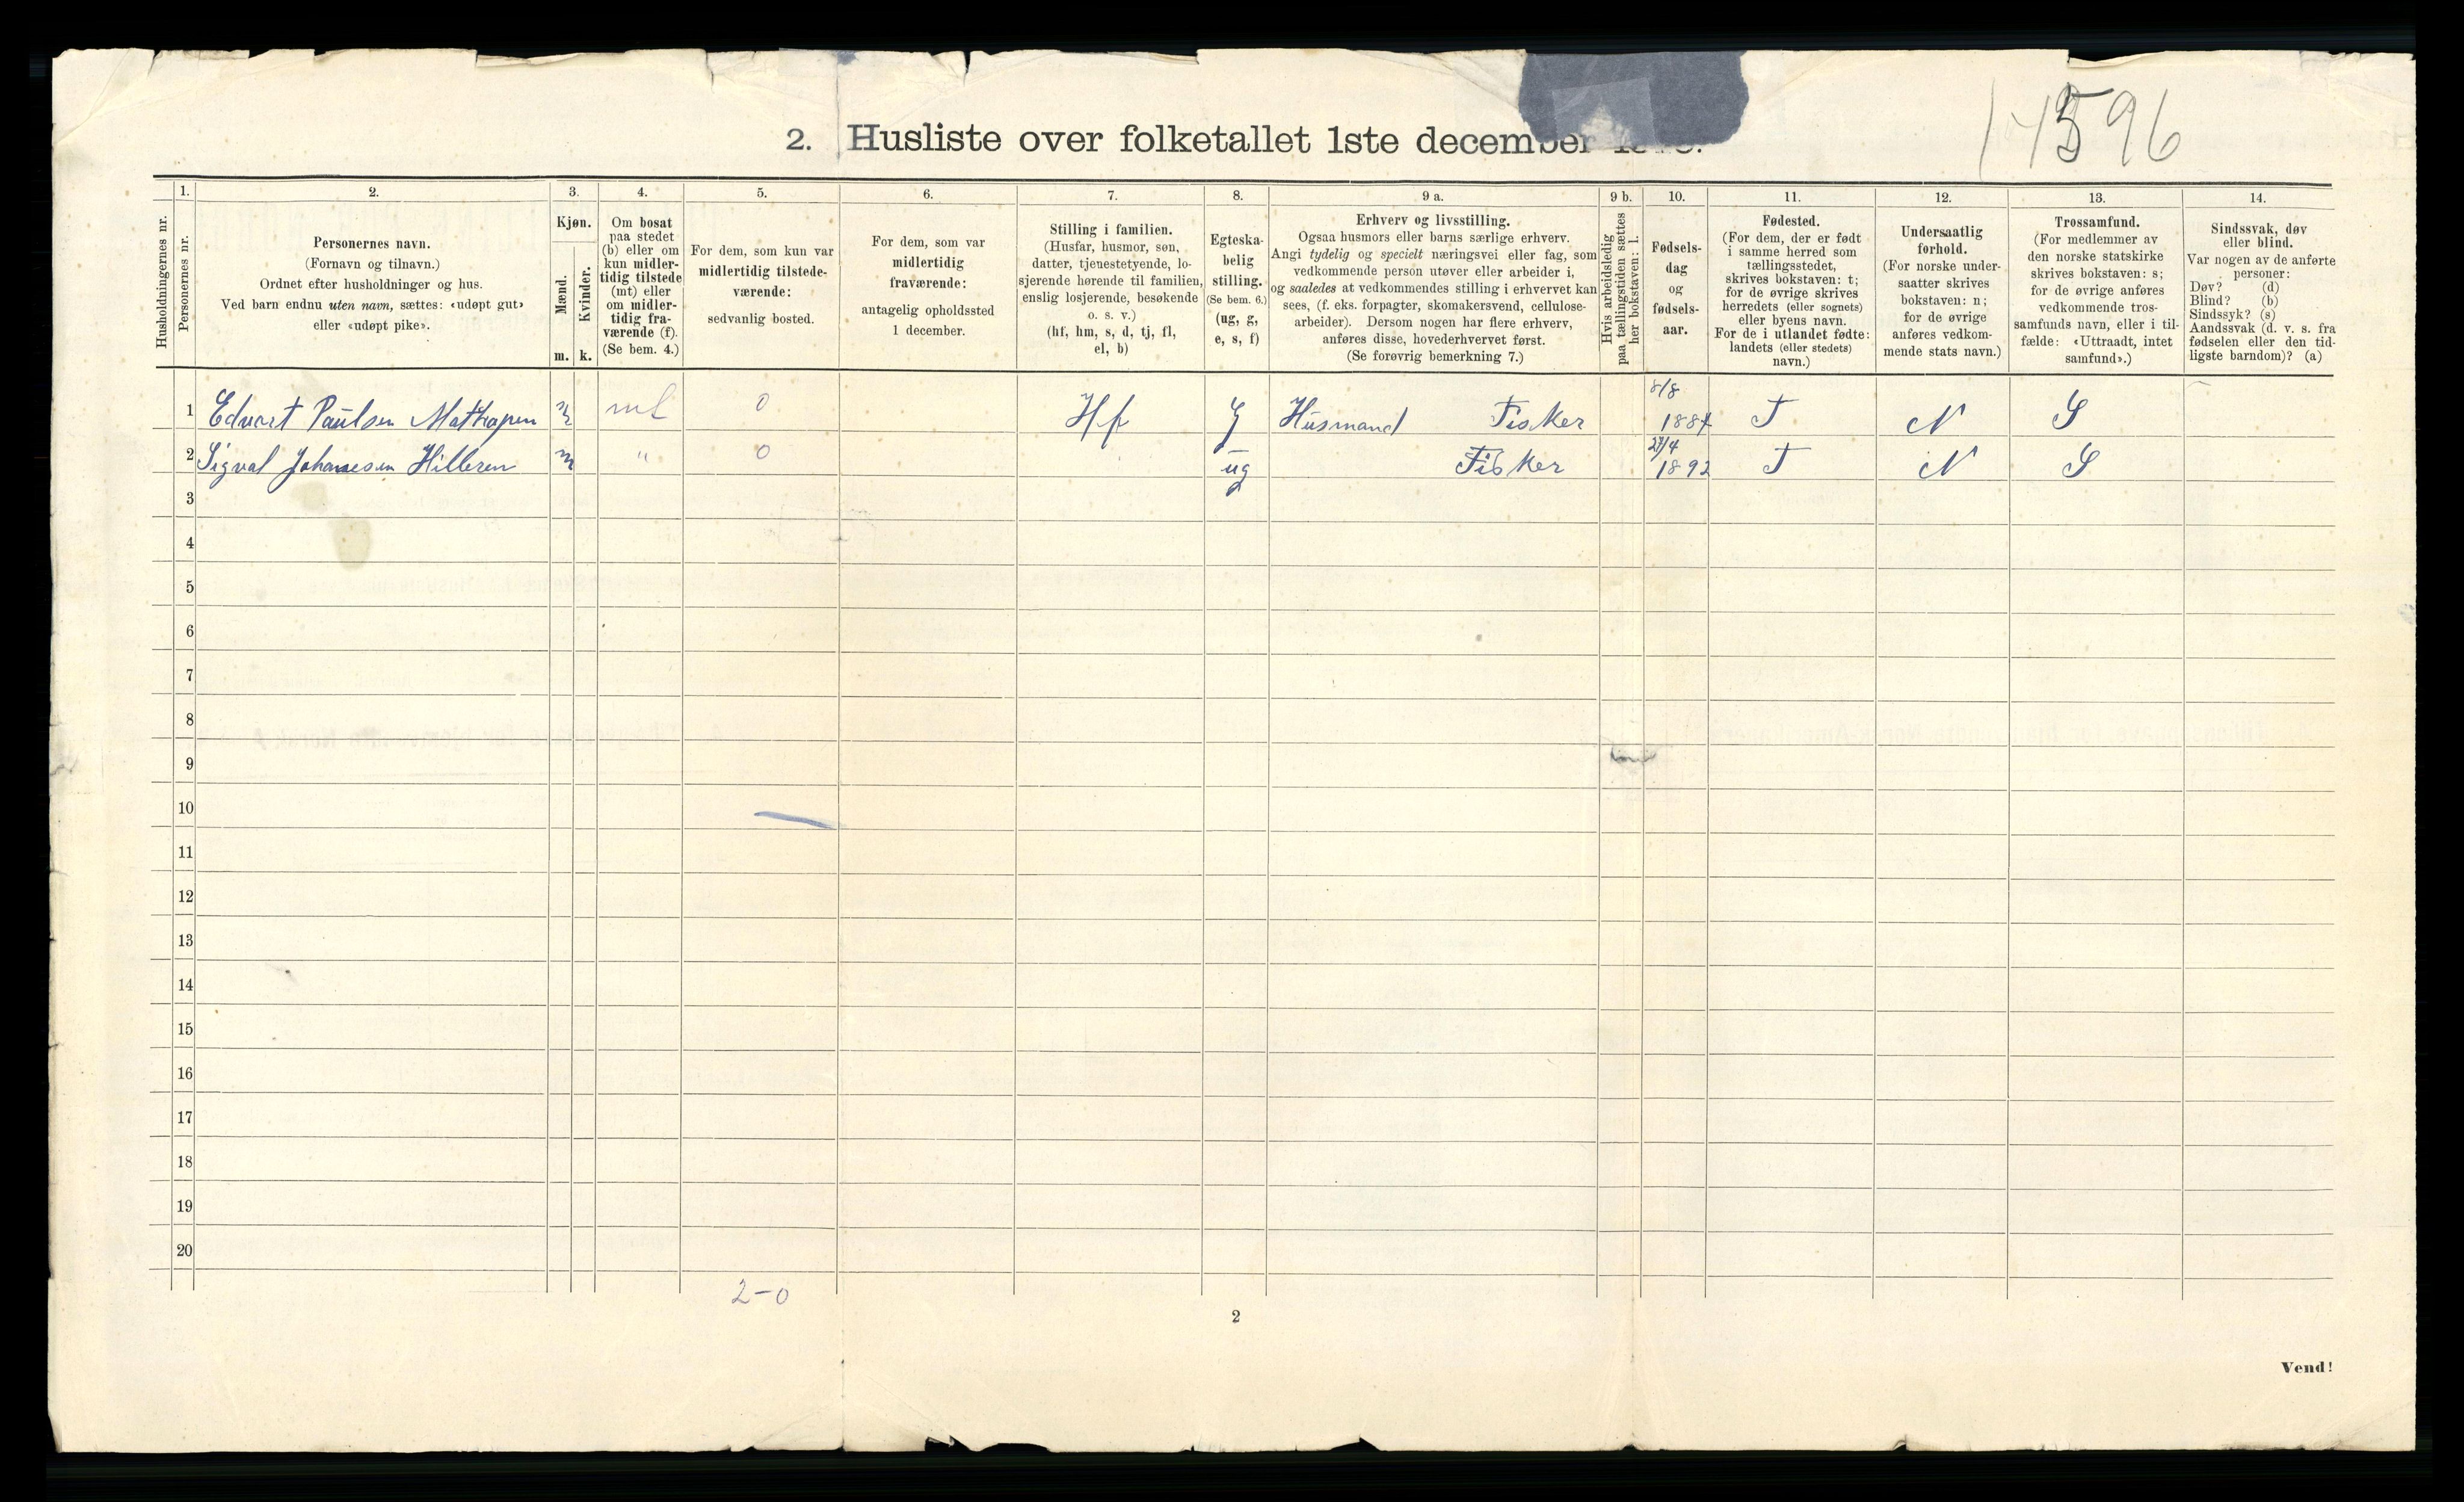 14596
2. Husliste over folketallet 1ste december
1.
2.
3.
4.
5.
6.
7.
8.
9 a.
9 b.
10.
11.
12.
13.
14.
Husholdningernes nr.
Personernes nr.
Personernes navn.
(Fornavn og tilnavn.)
Ordnet efter husholdninger og hus.
Ved barn endnu uten navn, sættes: «udøpt gut»
eller «udøpt pike».
Kjøn.
Mænd.
Kvinder.
m.
k.
Om bosat
paa stedet
(b) eller om
kun midler-
tidig tilstede
(mt) eller
om midler-
tidig fra-
værende (f).
(Se bem. 4.)
For dem, som kun var
midlertidig tilstede-
værende:
sedvanlig bosted.
For dem, som var
midlertidig
fraværende:
antagelig opholdssted
1 december.
Stilling i familien.
(Husfar, husmor, søn,
datter, tjenestetyende, lo-
sjerende hørende til familien,
enslig losjerende, besøkende
o. s. v.)
(hf, hm, s, d, tj, fl,
el, b)
Egteska-
belig
stilling.
(Se bem. 6.)
(ug, g,
e, s, f)
Erhverv og livsstilling.
Ogsaa husmors eller barns særlige erhverv.
Angi tydelig og specielt næringsvei eller fag, som
vedkommende person utøver eller arbeider i,
og saaledes at vedkommendes stilling i erhvervet kan
sees, (f. eks. forpagter, skomakersvend, cellulose-
arbeider). Dersom nogen har flere erhverv,
anføres disse, hovederhvervet først.
(Se forøvrig bemerkning 7.)
Hvis arbeidsledig
paa tællingstiden sættes
her bokstaven: l.
Fødsels-
dag
og
fødsels-
aar.
Fødested.
(For dem, der er født
i samme herred som
tællingsstedet,
skrives bokstaven: t;
for de øvrige skrives
herredets (eller sognets)
eller byens navn.
For de i utlandet fødte:
landets (eller stedets)
navn.)
Undersaatlig
forhold.
(For norske under-
saatter skrives
bokstaven: n;
for de øvrige
anføres vedkom-
mende stats navn.)
Trossamfund.
(For medlemmer av
den norske statskirke
skrives bokstaven: s;
for de øvrige anføres
vedkommende tros-
samfunds navn, eller i til-
fælde: «Uttraadt, intet
samfund».)
Sindssvak, døv
eller blind.
Var nogen av de anførte
personer:
Døv? (d)
Blind? (b)
Sindssyk? (s)
Aandssvak (d. v. s. fra
fødselen eller den tid-
ligste barndom)? (a)
1 Edvart Paulsen m mt 0 Hf g Husmand Fisker 8/8 1884 T N S
2 Sigval Johanesen Hilleren m " 0 ug Fisker 27/4 1892 T N S
3
4
5
6
7
8
9
10
11
12
13
14
15
16
17
18
19
20
2-0
2
Vend!